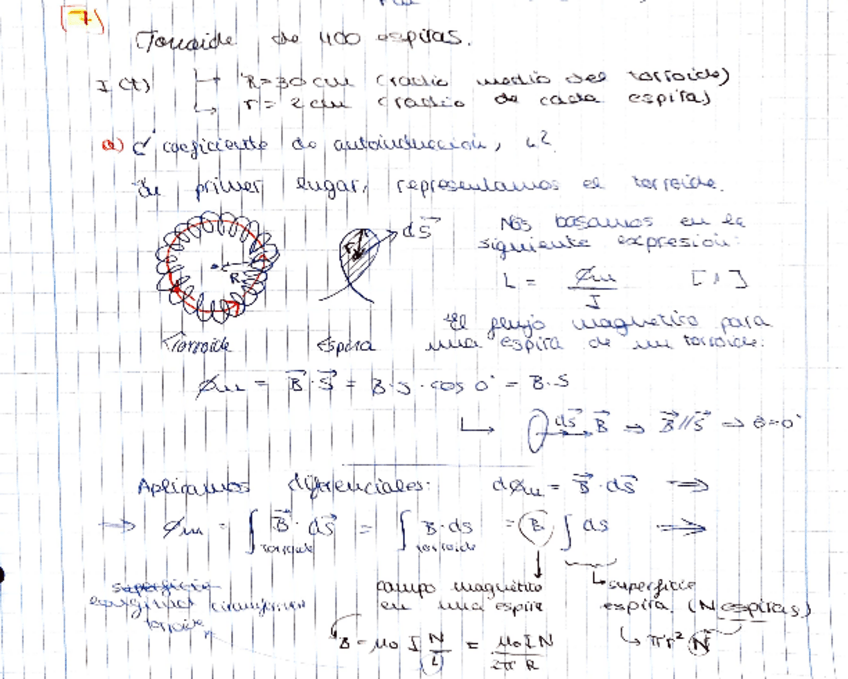 7)
Torroide de 400 espiras.
I(t) → R = 30 cm (radio medio del torroide)
↳ r = 2 cm (radio de cada espira)
a) ¿ coeficiente de autoinducción, L?
En primer lugar, representamos el torroide.
R
Torroide
r
dS⃗
Espira
Nos basamos en la
siguiente expresión:
L = Φm / I [1]
El flujo magnético para
una espira de un torroide:
Φm = B⃗ · S⃗ = B · S · cos 0° = B · S
↳ dS⃗ B⃗ ⇒ B⃗ // S⃗ ⇒ θ = 0°
Aplicamos diferenciales: dΦm = B⃗ · dS⃗ ⇒
⇒ Φm = ∫torroide B⃗ · dS⃗ = ∫torroide B · ds = B ∫ ds ⇒
superficie
circunferen
torroide
campo magnético
en una espira
B = μ0 I N/L = μ0 I N / 2π R
superficie
espira (N espiras)
↳ πr² N